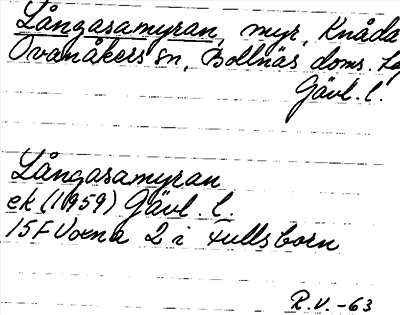 Långasamyran, myr, Knåda
Ovanåkers sn, Bollnäs doms.
Gävl. l.
Långasamyran
ek (1959) Gävl. l.
15F Voxna 2 i Fullsborn
R.V.-63